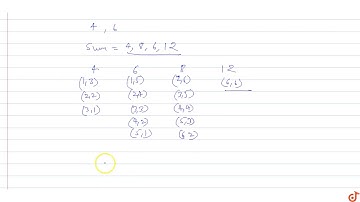 4 , 6
Sum = 4, 8, 6, 12
4 6 8 12
(1,3) (1,5) (2,6) (6,6)
(2,2) (2,4) (3,5)
(3,1) (3,3) (4,4)
(4,2) (5,3)
(5,1) (6,2)